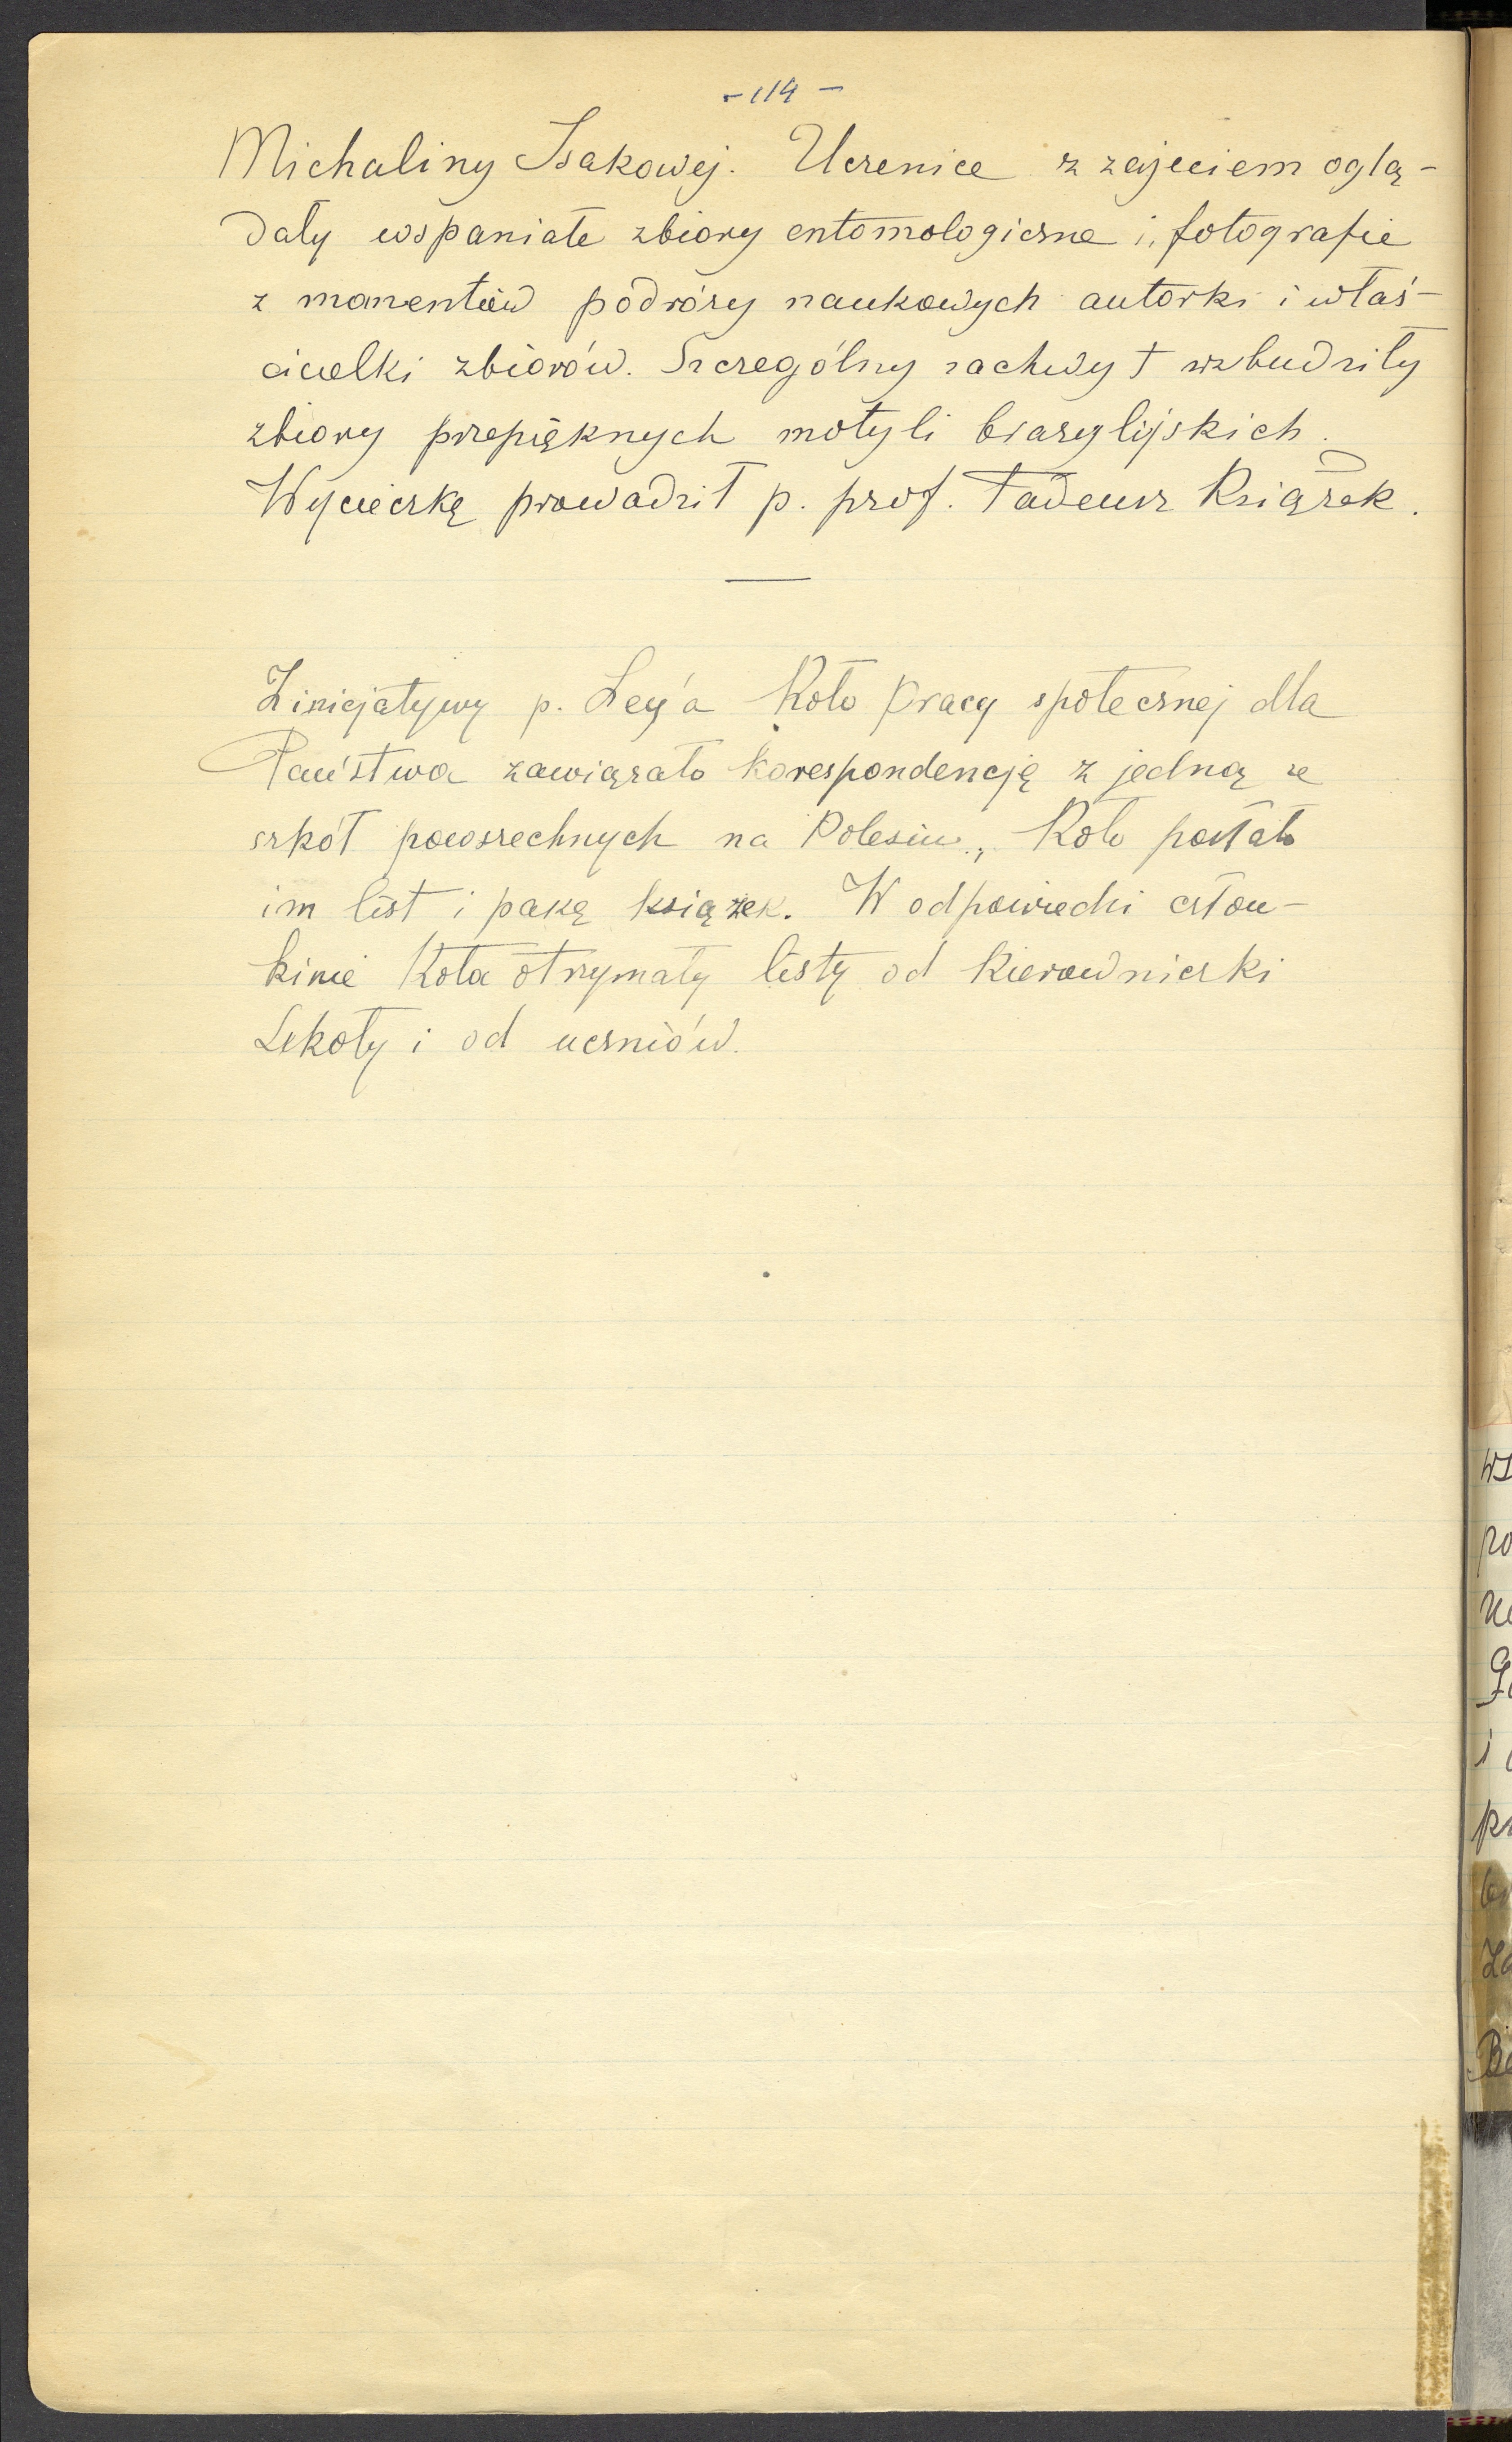 - 114 -
Michaliny Isakowej. Uczenice z zajęciem oglą-
dały wspaniałe zbiory entomologiczne i, fotografie
z momentów podróży naukowych autorki i właś-
cicielki zbiorów. Szczególny zachwyt wzbudziły
zbiory przepięknych motyli brazylijskich.
Wycieczkę prowadził p. prof. Tadeusz Książek.
Z inicjatywy p. Ley'a Koło Pracy społecznej dla
Państwa zawiązało korespondencję z jedną ze
szkół powszechnych na Polesiu, Koło posłało
im list i pakę książek. W odpowiedzi człon-
kinie Koła otrzymały listy od kierowniczki
Szkoły i od uczniów.